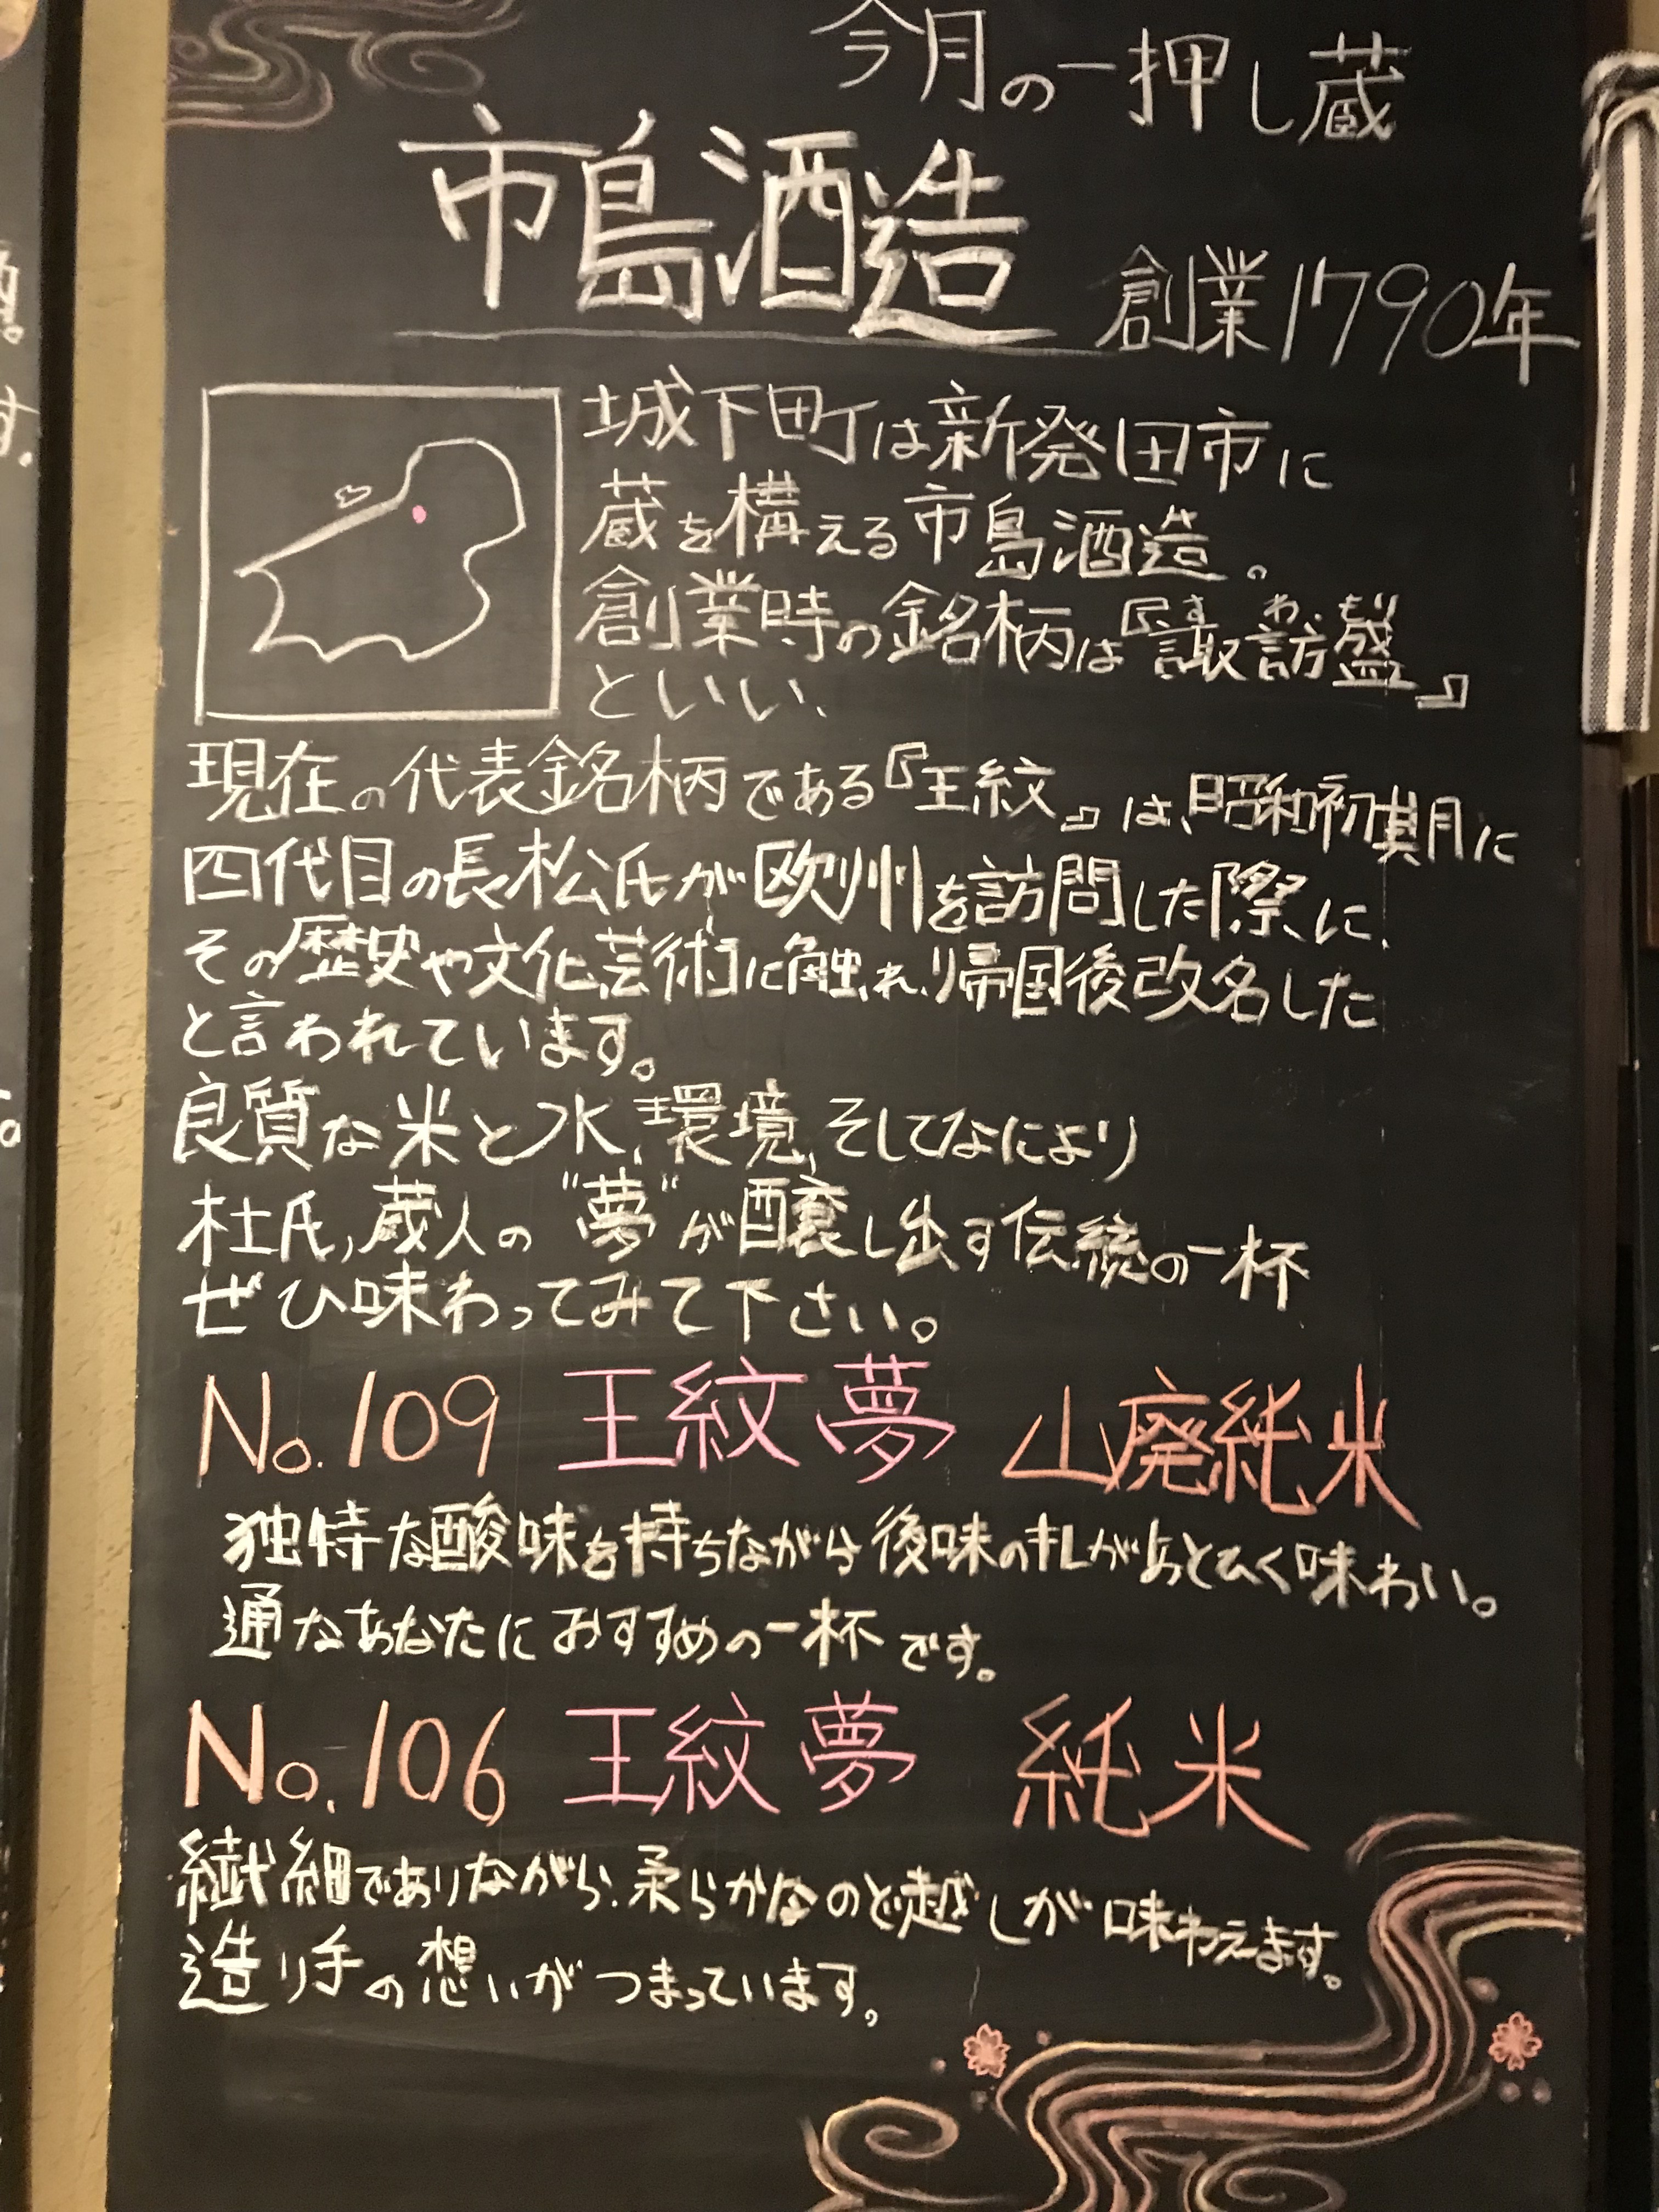 今月の一押し蔵
市島酒造
創業1790年
城下町は新発田市に
蔵を構える市島酒造。
創業時の銘柄は『諏訪盛』
すわもり
といい、
現在の代表銘柄である『王紋』は、昭和初期に
四代目の長松氏が欧州を訪問した際に、
その歴史や文化、芸術に触れ、帰国後改名した
と言われています。
良質な米と水、環境、そしてなにより
杜氏、蔵人の"夢"が醸し出す伝統の一杯
ぜひ味わってみて下さい。
No.109 王紋 夢 山廃純米
独特な酸味を持ちながら後味のキレがあとひく味わい。
通なあなたにおすすめの一杯です。
No.106 王紋 夢 純米
繊細でありながら、柔らかなのど越しが味わえます。
造り手の想いがつまっています。
す。